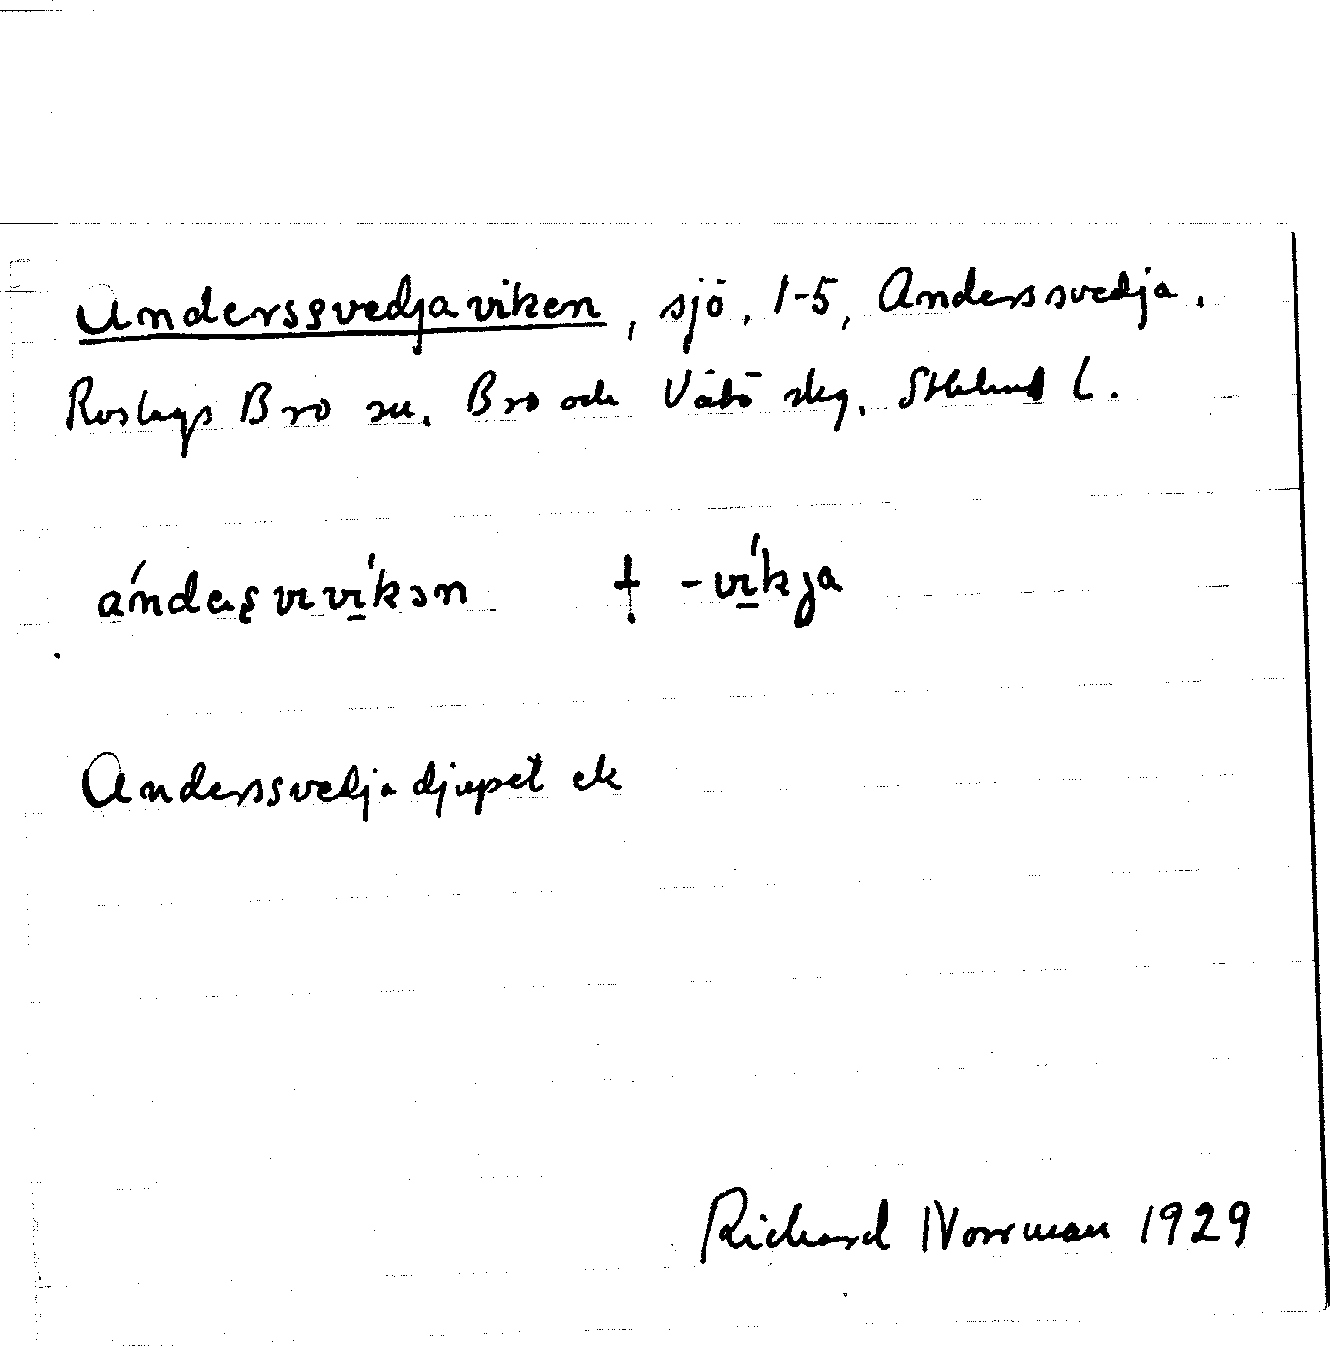 Anderssvedjaviken, sjö, 1-5, Anderssvedja.
Roslags Bro sn. Bro och Vätö skg. Sthlms L.
ánderșvıvı̱́kən † -vı̱́kja
Anderssvedjadjupet ek
Richard Norrman 1929